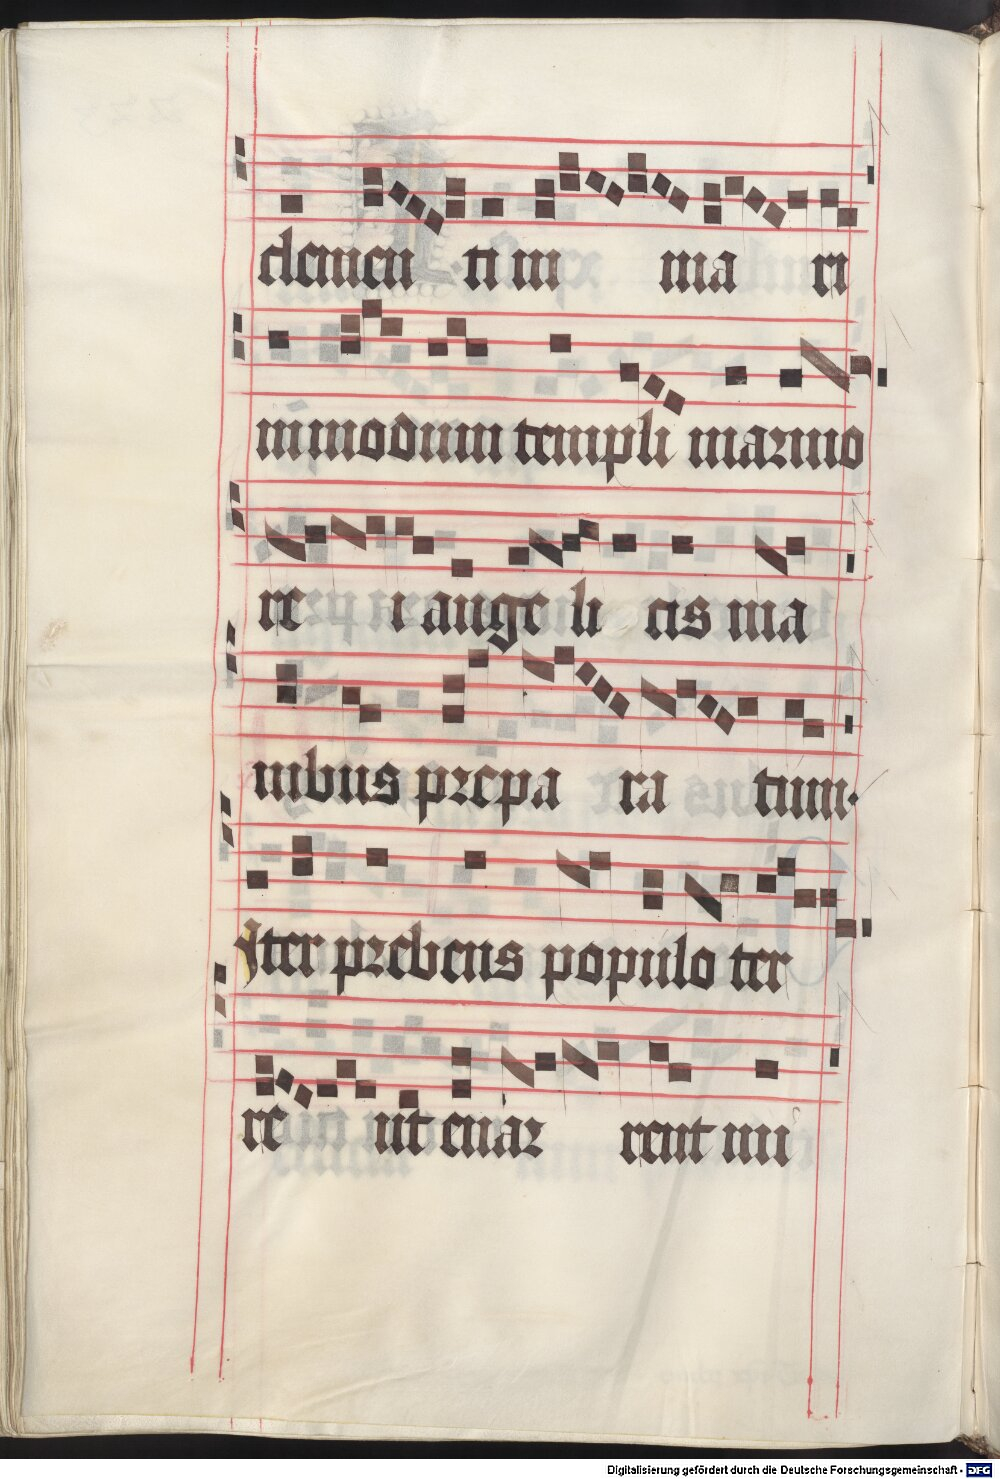 clemen ti m ma ri
m modum templi marmo
re i ange li cis ma
nibus prepa ra tum.
Iter prebens populo ter
re ut enar rent mi
Digitalisierung gefördert durch die Deutsche Forschungsgemeinschaft - DFG